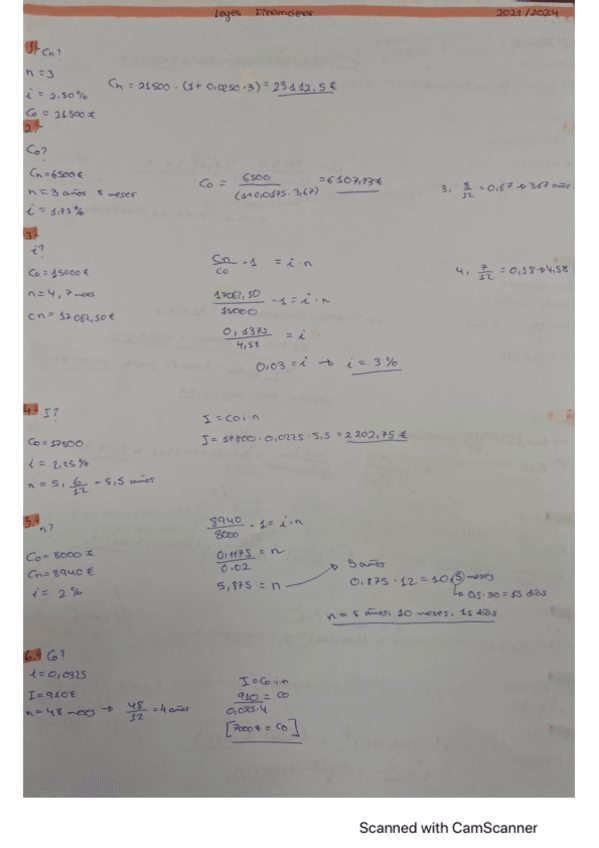 Leyes Financieras 2023/2024
1.- Cn?
n = 3
i = 2.50%
Co = 21500 €
Cn = 21500 · (1 + 0,0250 · 3) = 23112,5 €
2.-
Co?
Cn = 6500 €
n = 3 años 8 meses
i = 1,75%
Co = 6500 / (1+0,0175 · 3,67) = 6107,93 €
3, 8/12 = 0,67 → 3,67 años
3.-
i?
Co = 15000 €
n = 4, 7 meses
Cn = 17062,50 €
Cn/Co - 1 = i · n
17062,50/15000 - 1 = i · n
0,1375/4,58 = i
0,03 = i → i = 3%
4, 7/12 = 0,58 → 4,58
4.- I?
Co = 17800
i = 2,25%
n = 5, 6/12 = 5,5 años
I = Co · i · n
I = 17800 · 0,0225 · 5,5 = 2202,75 €
5.-
n?
Co = 8000 €
Cn = 8940 €
i = 2%
8940/8000 - 1 = i · n
0,1175/0.02 = n
5,875 = n
5 años
0,875 · 12 = 10,5 meses
0,5 · 30 = 15 días
n = 5 años, 10 meses, 15 días
6.- Co?
i = 0,0325
I = 910 €
n = 48 meses → 48/12 = 4 años
I = Co · i · n
910/0,0325 · 4 = Co
[7000 € = Co]
Scanned with CamScanner